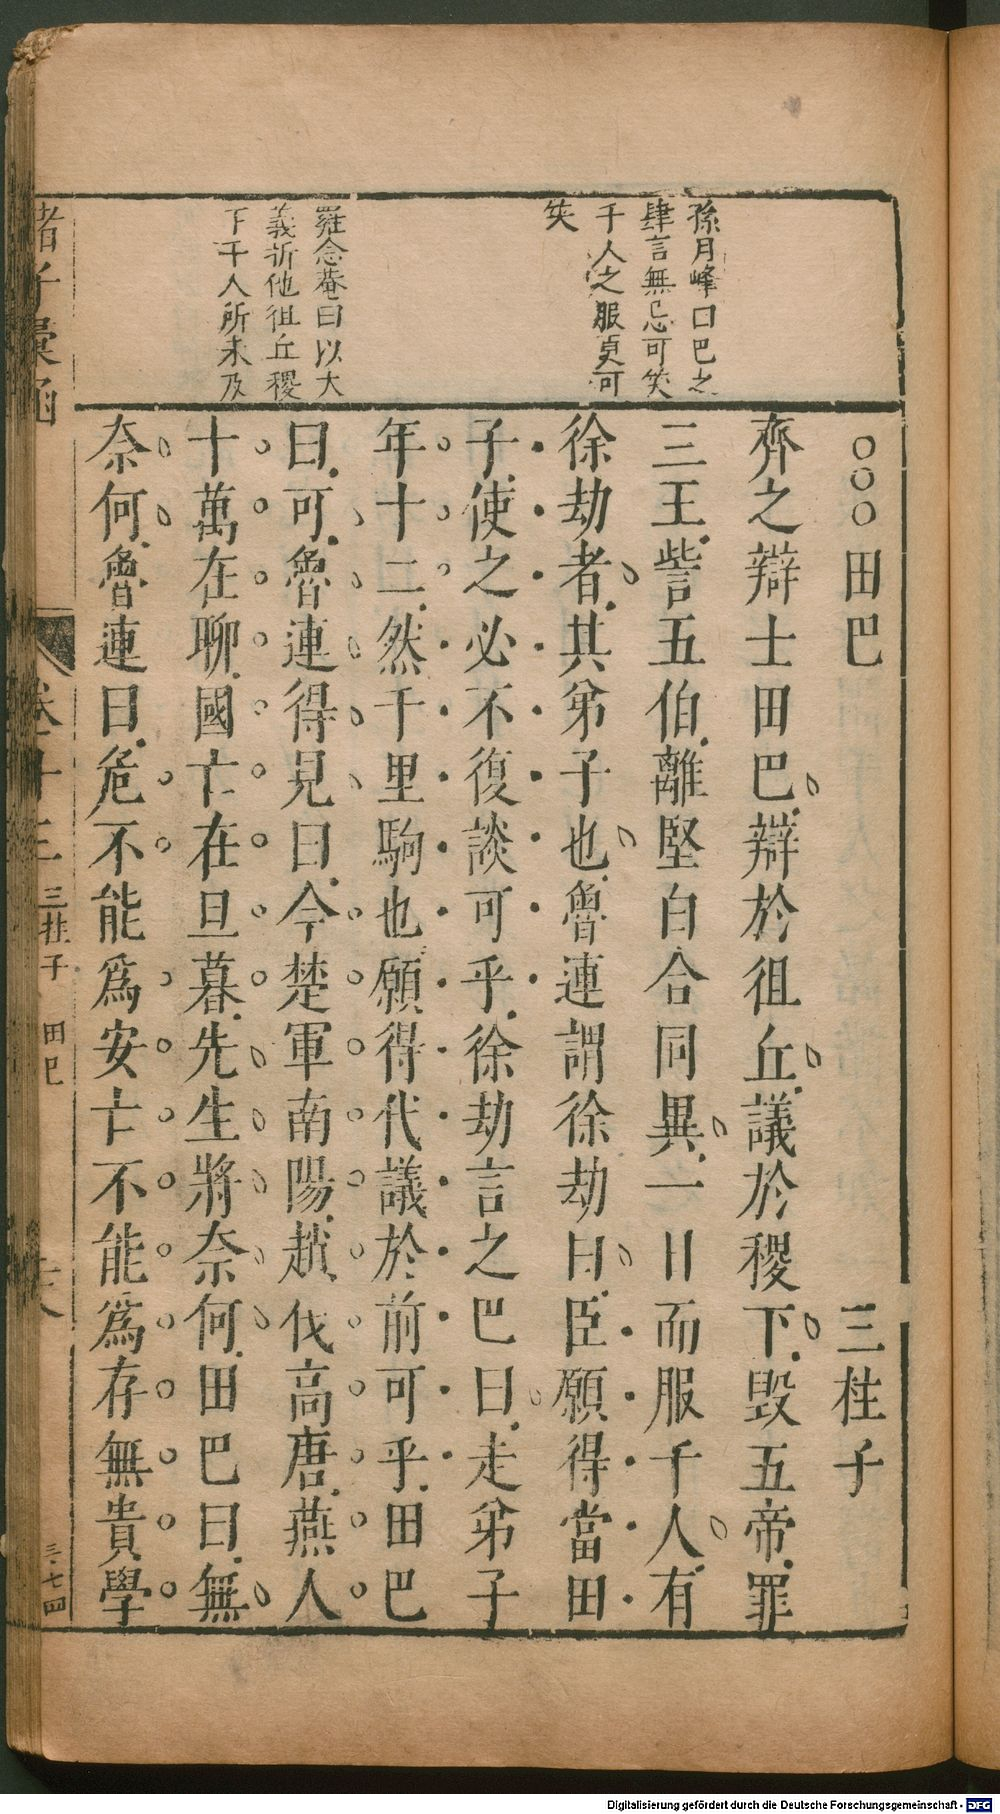 孫月峰曰巴之
肆言無忌可笑
千人之服更可
笑
羅念菴曰以大
義折他徂丘稷
下千人所未及
○○○田巴 三柱子
齊之辯士田巴辯於徂丘議於稷下毀五帝罪
三王訾五伯離堅白合同異一日而服千人有
徐劫者其弟子也魯連謂徐劫曰臣願得當田
子使之必不復談可乎徐劫言之巴曰走弟子
年十二然千里駒也願得代議於前可乎田巴
曰可魯連得見曰今楚軍南陽趙伐高唐燕人
十萬在聊國亡在旦暮先生將奈何田巴曰無
奈何魯連曰危不能爲安亡不能爲存無貴學
諸子彙函
卷十三 三柱子 田巴
三七四
Digitalisierung gefördert durch die Deutsche Forschungsgemeinschaft - DFG